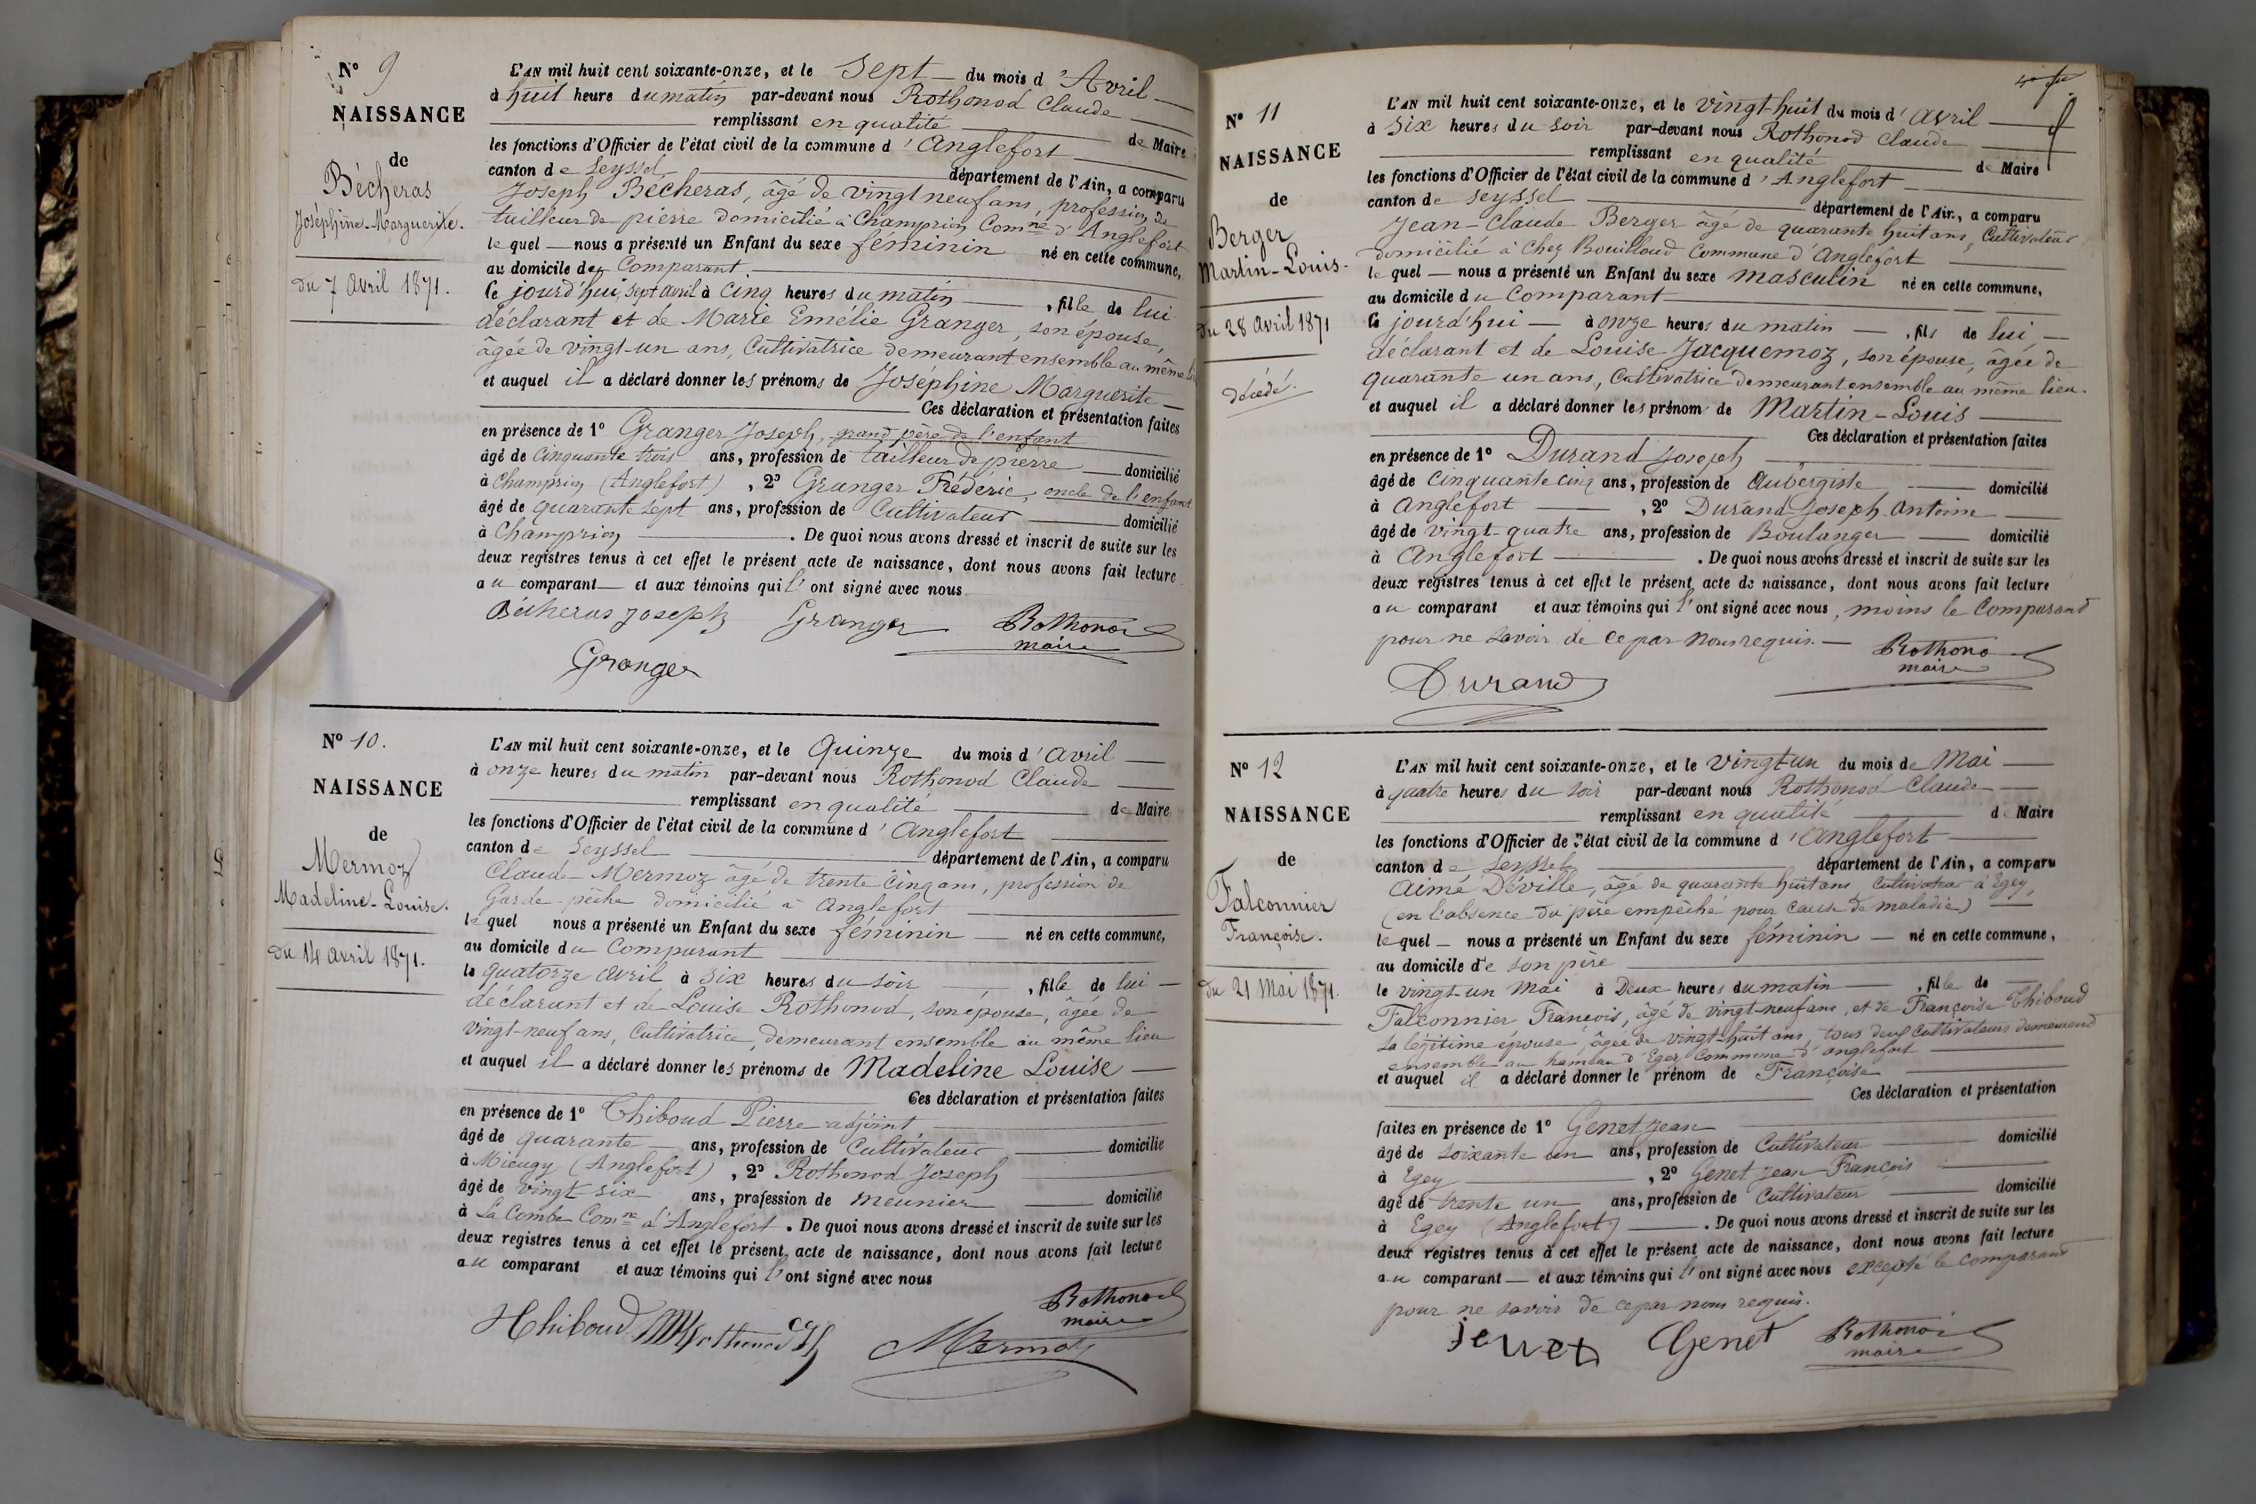 N° 9
NAISSANCE
de
Bécheras
Joséphine-Marguerite.
du 7 Avril 1871.
L'AN mil huit cent soixante-onze, et le Sept du mois d'Avril
à huit heure du matin par-devant nous Rothonod Claude
remplissant en qualité de Maire
les fonctions d'Officier de l'état civil de la commune d'Anglefort
canton de Seyssel département de l'Ain, a comparu
Joseph Bécheras, âgé de vingt neuf ans, profession de
tailleur de pierre domicilié à Champrion Comne d'Anglefort
lequel nous a présenté un Enfant du sexe féminin né en cette commune,
au domicile du Comparant
ce jourd'hui, sept avril à cinq heures du matin, fille de lui
déclarant et de Marie Emélie Granger, son épouse,
âgée de vingt-un ans, Cultivatrice demeurant ensemble au même
et auquel il a déclaré donner les prénoms de Joséphine Marguerite
Ces déclaration et présentation faites
en présence de 1° Granger Joseph, grand père de l'enfant
âgé de cinquante trois ans, profession de tailleur de pierre domicilié
à Champrion (Anglefort), 2° Granger Fréderic, oncle de l'enfant
âgé de quarante sept ans, profession de Cultivateur domicilié
à Champrion. De quoi nous avons dressé et inscrit de suite sur les
deux registres tenus à cet effet le présent acte de naissance, dont nous avons fait lecture
au comparant et aux témoins qui l'ont signé avec nous
Bécheras Joseph Granger Rothonod
maire
Granger
N° 10.
NAISSANCE
de
Mermoz
Madeline-Louise.
du 14 avril 1871.
L'AN mil huit cent soixante-onze, et le Quinze du mois d'avril
à onze heures du matin par-devant nous Rothonod Claude
remplissant en qualité de Maire
les fonctions d'Officier de l'état civil de la commune d'Anglefort
canton de Seyssel département de l'Ain, a comparu
Claude Mermoz âgé de trente cinq ans, profession de
Garde-pêche domicilié à Anglefort
lequel nous a présenté un Enfant du sexe féminin né en cette commune,
au domicile du Comparant
le quatorze avril à six heures du soir, fille de lui
déclarant et de Louise Rothonod, son épouse, âgée de
vingt-neuf ans, Cultivatrice, demeurant ensemble au même lieu
et auquel il a déclaré donner les prénoms de Madeline Louise
Ces déclaration et présentation faites
en présence de 1° Thiboud Pierre adjoint
âgé de quarante ans, profession de Cultivateur domicilié
à Mieugy (Anglefort), 2° Rothonod Joseph
âgé de vingt-six ans, profession de meunier domicilié
à La Combe Comne d'Anglefort. De quoi nous avons dressé et inscrit de suite sur les
deux registres tenus à cet effet le présent acte de naissance, dont nous avons fait lecture
au comparant et aux témoins qui l'ont signé avec nous
Rothonod
maire
Thiboud Mermoz
N° 11
NAISSANCE
de
Berger
Martin-Louis.
du 28 avril 1871
décédé.
L'AN mil huit cent soixante-onze, et le vingt-huit du mois d'avril
à six heures du soir par-devant nous Rothonod Claude
remplissant en qualité de Maire
les fonctions d'Officier de l'état civil de la commune d'Anglefort
canton de Seyssel département de l'Ain, a comparu
Jean-Claude Berger âgé de quarante huit ans, Cultivateur
domicilié à Chez Bouilloud Commune d'Anglefort
lequel nous a présenté un Enfant du sexe masculin né en cette commune,
au domicile du Comparant
ce jourd'hui à onze heures du matin, fils de lui
déclarant et de Louise Jacquemoz, son épouse, âgée de
quarante un ans, Cultivatrice demeurant ensemble au même lieu.
et auquel il a déclaré donner les prénom de Martin-Louis
Ces déclaration et présentation faites
en présence de 1° Durand Joseph
âgé de cinquante cinq ans, profession de Aubergiste domicilié
à Anglefort, 2° Durand Joseph Antoine
âgé de vingt-quatre ans, profession de Boulanger domicilié
à Anglefort. De quoi nous avons dressé et inscrit de suite sur les
deux registres tenus à cet effet le présent acte de naissance, dont nous avons fait lecture
au comparant et aux témoins qui l'ont signé avec nous, moins le Comparant
pour ne savoir de ce par nous requis.
Rothonod
maire
Durand
N° 12
NAISSANCE
de
Falconnier
Françoise.
du 21 Mai 1871.
L'AN mil huit cent soixante-onze, et le vingt-un du mois de Mai
à quatre heures du soir par-devant nous Rothonod Claude
remplissant en qualité de Maire
les fonctions d'Officier de l'état civil de la commune d'Anglefort
canton de Seyssel département de l'Ain, a comparu
Aimé Déville, âgé de quarante huit ans, cultivateur à Egey,
(en l'absence du père empêché pour cause de maladie)
lequel nous a présenté un Enfant du sexe féminin né en cette commune,
au domicile de son père
le vingt-un Mai à Deux heures du matin, fille de
Falconnier François, âgé de vingt-neuf ans, et de Françoise Thiboud
sa légitime épouse, âgée de vingt-huit ans tous deux cultivateurs demeurant
ensemble au hameau d'Egey Commune d'Anglefort
et auquel il a déclaré donner le prénom de Françoise
Ces déclaration et présentation
faites en présence de 1° Genet Jean
âgé de soixante un ans, profession de Cultivateur domicilié
à Egey, 2° Genet Jean François
âgé de trente un ans, profession de Cultivateur domicilié
à Egey (Anglefort). De quoi nous avons dressé et inscrit de suite sur les
deux registres tenus à cet effet le présent acte de naissance, dont nous avons fait lecture
au comparant et aux témoins qui l'ont signé avec nous excepté le comparant
pour ne savoir de ce par nous requis.
jenet Genet Rothonod
maire